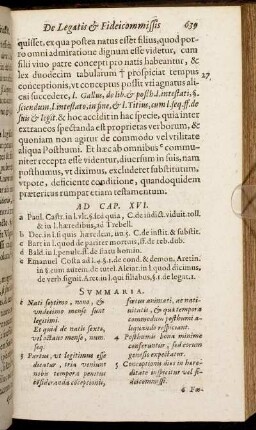 De Legatis & Fideicommissis 639
quisset, ex qua postea natus esset filius, quod por-
ro omni admiratione dignum esse videtur, cum
filii vivo patre concepti pro natis habeantur, &
lex duodecim tabularum † prospiciat tempus 27
conceptionis, vt conceptus possit vti agnatus alicui
succedere, l. Gallus, de lib. & posth. l. intestati, §.
sciendum, l. intestato, in fine, & l. Titius, cum l. seq. ff. de
suis & legit. & hoc accidit in hac specie, quia inter
extraneos spectanda est proprietas verborum, &
quoniam non agitur de commodo vel vtilitate
aliqua Posthumi. Et hæc ab omnibus e commu-
niter recepta esse videntur, diversum in suis, nam
posthumus, vt diximus, excludetur substitutum,
vtpote, deficiente conditione, quandoquidem
præteritus rumpat etiam testamentum.
AD CAP. XVI.
a Paul. Castr. in l. vlt. §. foi quia, C. de indict. viduit. toll.
& in l. hæredibus, ad Trebell.
b Dec. in l. si quis hæredem, in C. de instit. & substit.
c Bart. in l. quod de pariter mortuis, ff. de reb. dub.
d Bald. in l. penult. ff. de statu homin.
e Emanuel Costa ad l. 4. §. 1. de cond. & demon. Aretin.
in §. cum autem, de tutel. Alciat. in l. quod dicimus,
de verb. signif. Aret. in l. qui filiabus, §. 1. de legat. 1.
SUMMARIA.
1 Nati septimo, nono, &
undecimo mense sunt
legitimi.
2 Et quid de natis sexto,
vel octavo mense, num.
seq.
3 Partus, ut legitimus esse
dicatur, tria veniunt
consideranda conceptionis,
fœtus animati, ac nati-
vitatis, & in quo tempora
commodum posthumi a-
4 Posthumis bona minime
conferuntur, sed eorum
genesis expectatur.
5 Conceptionis dies in hære-
ditate inspicitur vel fi-
deicommissi.
6 Fœ-